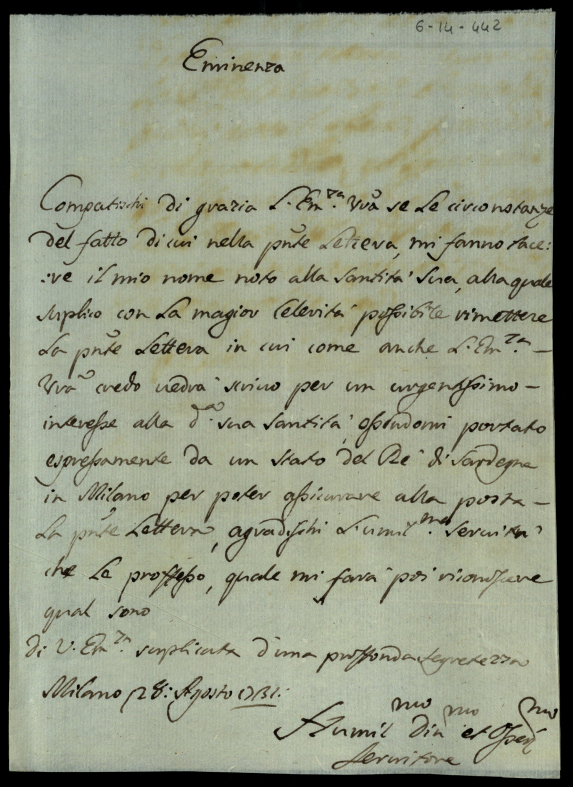 6-14-442
Eminenza
Compatischi di grazia L. Em.za Vrã se le circonstanze
del fatto di cui nella pñte Lettera, mi fanno tace:
:re il mio nome noto alla Santità Sua, alla quale
suplico con La magior Celerità possibile rimettere
La pñte Lettera in cui come anche L. Em.za –
Vrã credo vedrà scrivo per un urgentissimo –
interesse alla dª sua Santità, essendomi portato
espressamente da un stato del Rè di Sardegna
in Milano per poter assicurare alla posta –
La pñte Lettera, agradischi L. umil.ma Servitù
che Le professo, quale mi farà poi riconoscere
qual sono
di V. Em.za suplicata d'una profonda segretezza
Milano 28: Agosto 1731:
Humil.mo Div.mo et Osse.mo
Servitore